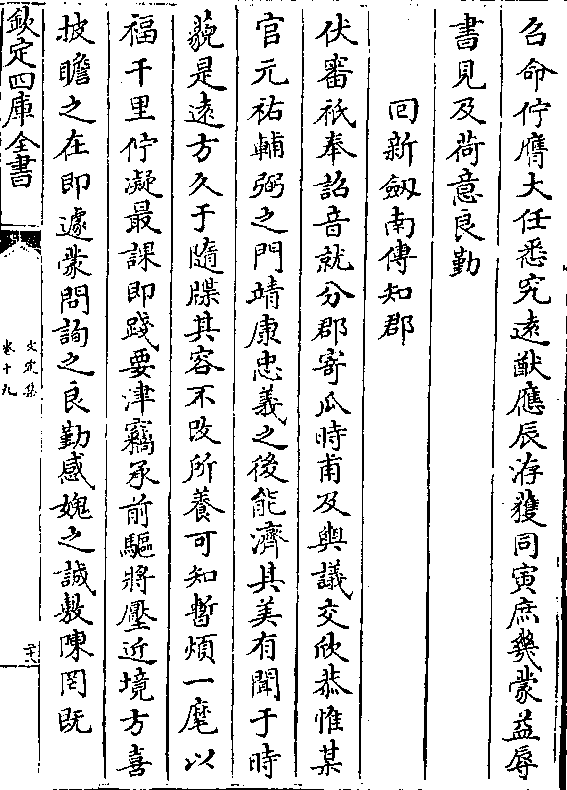 召命佇膺大任悉究遠猷應辰洊獲同寅庶㡬蒙益辱
書見及荷意良勤
回新劔南傅知郡
伏審祇奉詔音就分郡寄瓜時甫及輿議交欣恭惟某
官元祐輔弼之門靖康忠義之後能濟其美有聞于時
藐是遠方久于隨牒其容不改所養可知暫煩一麾以
福千里佇凝最課即踐要津竊承前驅將壓近境方喜
披瞻之在即遽蒙問詢之良勤感媿之誠敷陳罔既
欽定四庫全書
文定集
卷十九